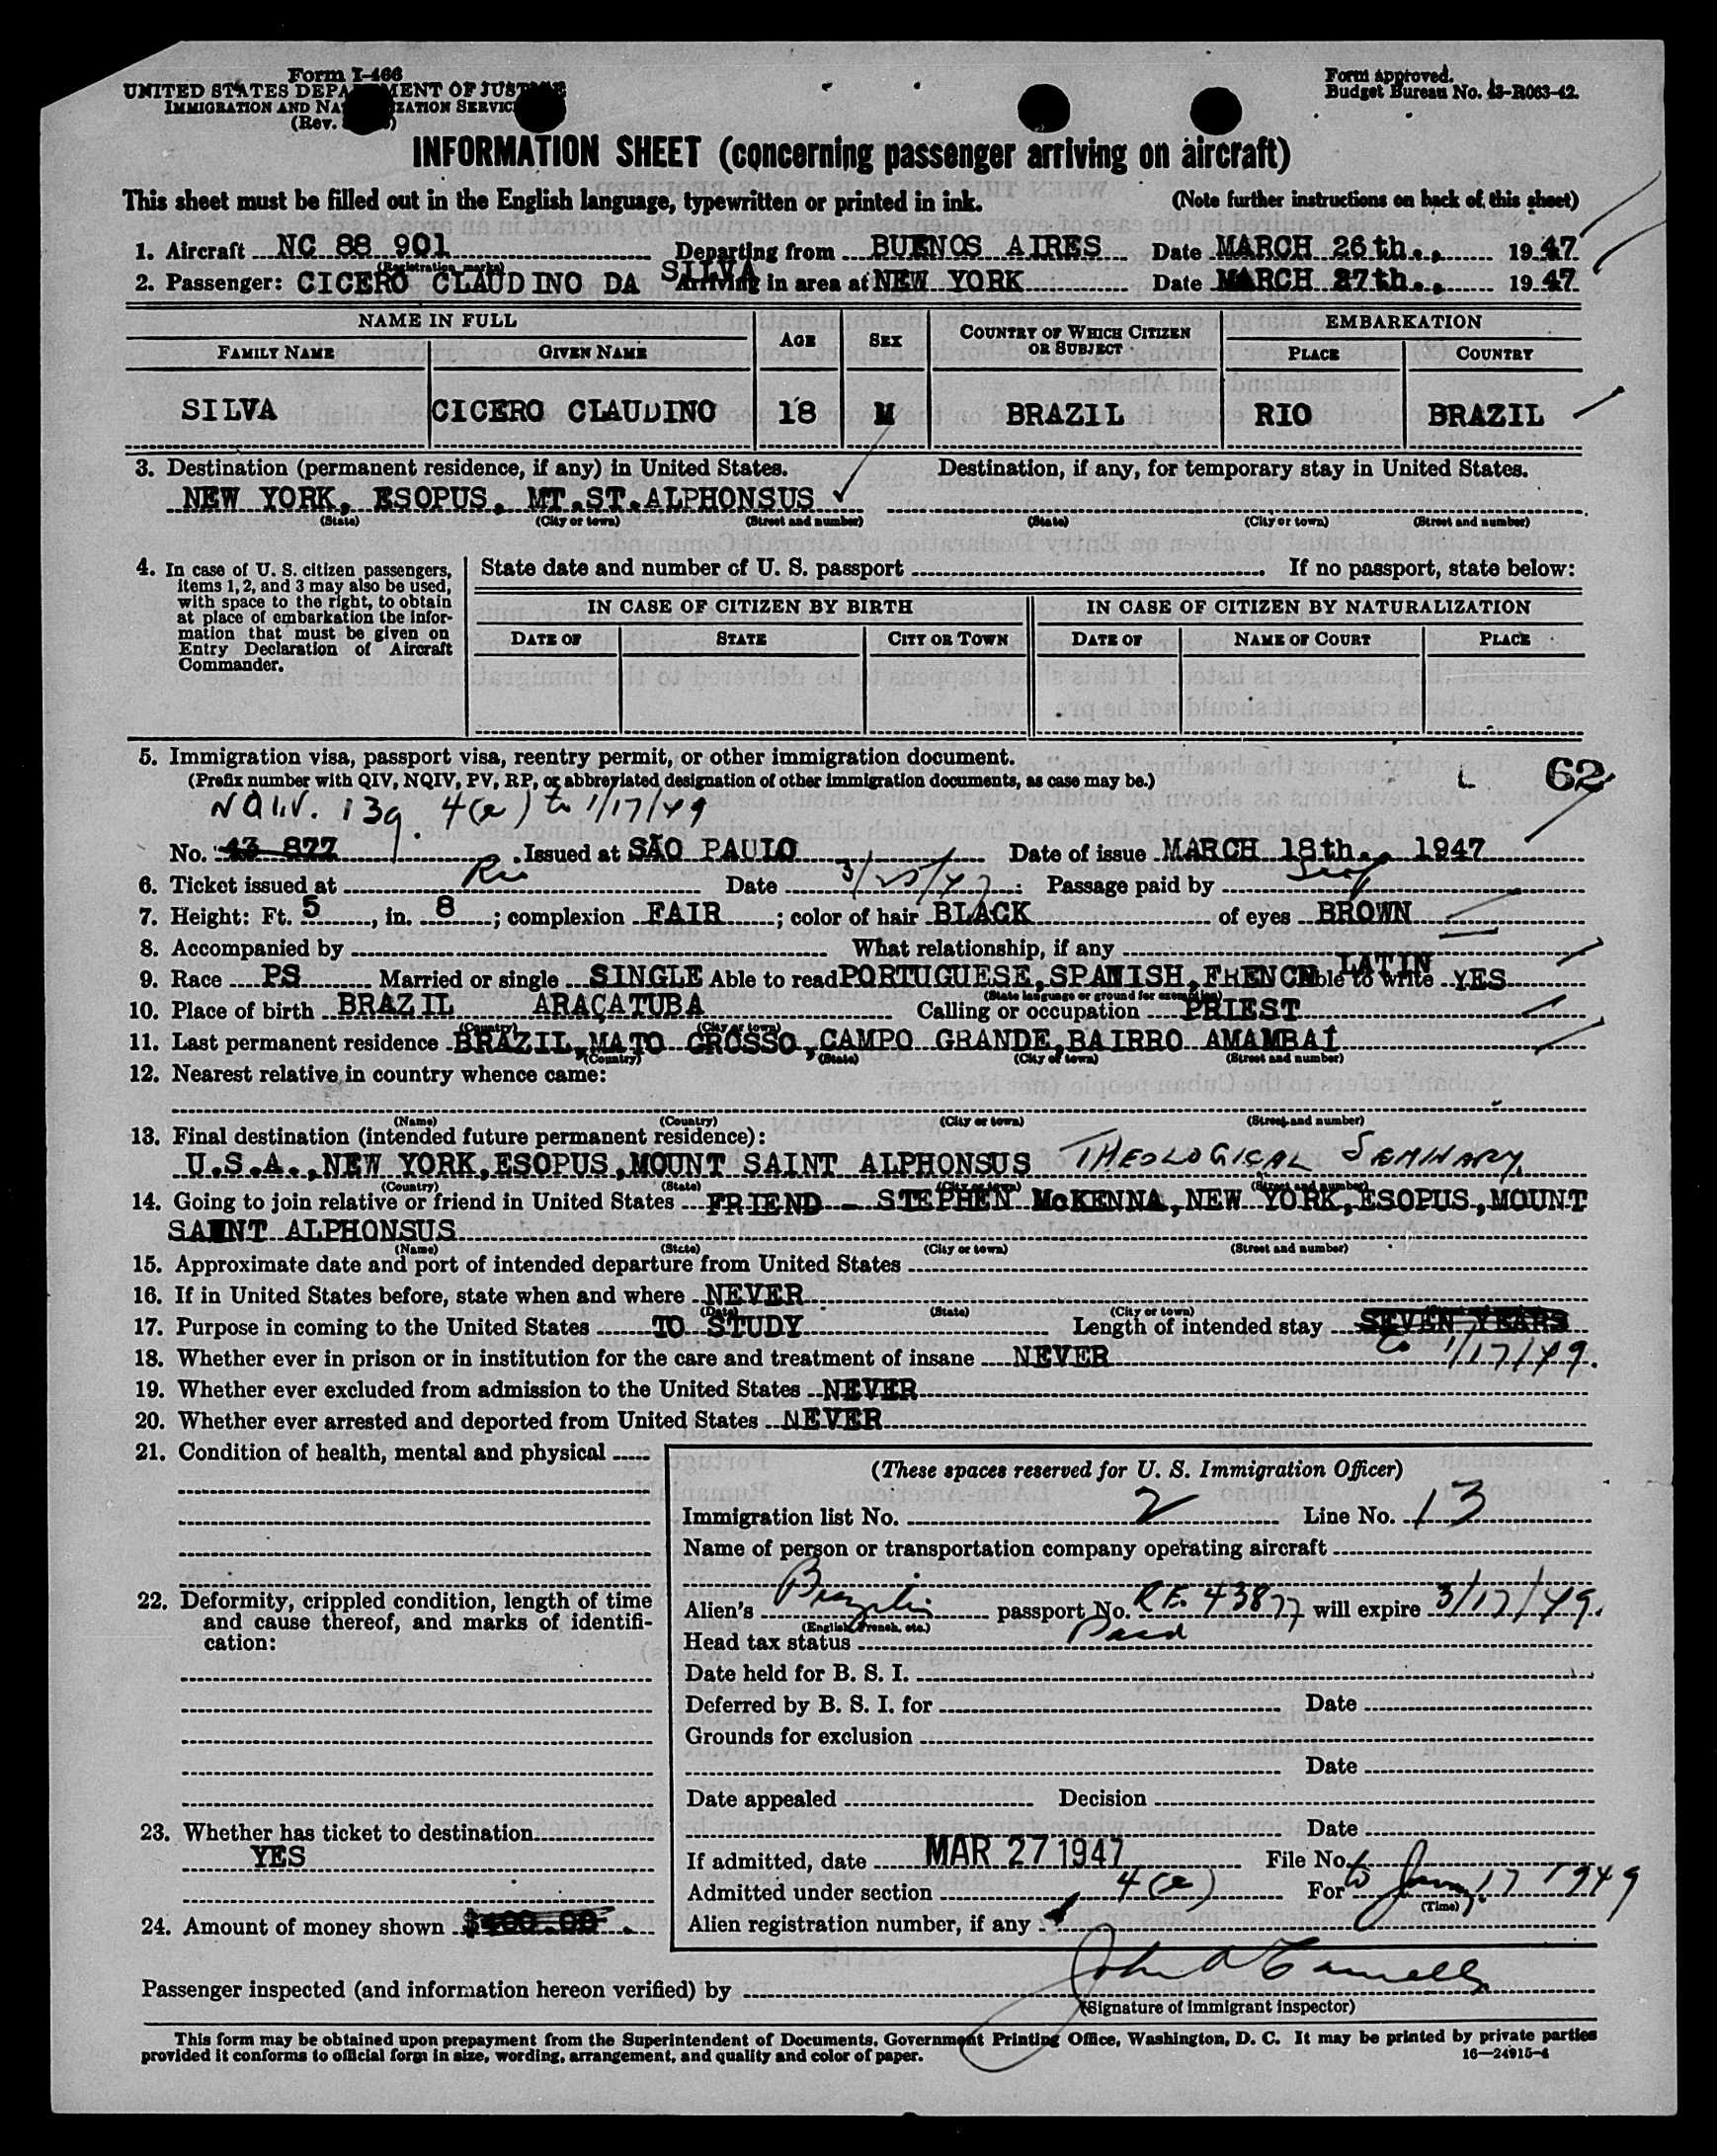 Form I-466
UNITED STATES DEPARTMENT OF JUSTICE
IMMIGRATION AND NATURALIZATION SERVICE
(Rev.
Form approved.
Budget Bureau No. 43-R063-42.
INFORMATION SHEET (concerning passenger arriving on aircraft)
This sheet must be filled out in the English language, typewritten or printed in ink. (Note further instructions on back of this sheet)
1. Aircraft NC 88 901 Departing from BUENOS AIRES Date MARCH 26th., 1947
(Registration marks)
2. Passenger: CICERO CLAUDINO DA SILVA Arriving in area at NEW YORK Date MARCH 27th., 1947
NAME IN FULL AGE SEX COUNTRY OF WHICH CITIZEN OR SUBJECT EMBARKATION
FAMILY NAME GIVEN NAME PLACE COUNTRY
SILVA CICERO CLAUDINO 18 M BRAZIL RIO BRAZIL
3. Destination (permanent residence, if any) in United States. Destination, if any, for temporary stay in United States.
NEW YORK, ESOPUS, MT.ST.ALPHONSUS
(State) (City or town) (Street and number) (State) (City or town) (Street and number)
4. In case of U. S. citizen passengers,
items 1, 2, and 3 may also be used,
with space to the right, to obtain
at place of embarkation the infor-
mation that must be given on
Entry Declaration of Aircraft
Commander.
State date and number of U. S. passport If no passport, state below:
IN CASE OF CITIZEN BY BIRTH IN CASE OF CITIZEN BY NATURALIZATION
DATE OF STATE CITY OR TOWN DATE OF NAME OF COURT PLACE
5. Immigration visa, passport visa, reentry permit, or other immigration document.
(Prefix number with QIV, NQIV, PV, RP, or abbreviated designation of other immigration documents, as case may be.) L 62
NQIV. 139. 4(e) to 1/17/49
No. 43 877 Issued at SÃO PAULO Date of issue MARCH 18th., 1947
6. Ticket issued at Rio Date 3/25/47 Passage paid by
7. Height: Ft. 5, in. 8; complexion FAIR; color of hair BLACK of eyes BROWN
8. Accompanied by What relationship, if any
9. Race PS Married or single SINGLE Able to read PORTUGUESE, SPANISH, FRENCH LATIN Able to write YES
(State language or ground for exemption)
10. Place of birth BRAZIL ARAÇATUBA Calling or occupation PRIEST
(Country) (City or town)
11. Last permanent residence BRAZIL, MATO GROSSO, CAMPO GRANDE, BAIRRO AMAMBAÍ
(Country) (State) (City or town) (Street and number)
12. Nearest relative in country whence came:
(Name) (Country) (City or town) (Street and number)
13. Final destination (intended future permanent residence):
U.S.A., NEW YORK, ESOPUS, MOUNT SAINT ALPHONSUS THEOLOGICAL SEMINARY
(Country) (State) (City or town) (Street and number)
14. Going to join relative or friend in United States FRIEND - STEPHEN McKENNA, NEW YORK, ESOPUS, MOUNT
SAINT ALPHONSUS
(Name) (State) (City or town) (Street and number)
15. Approximate date and port of intended departure from United States
16. If in United States before, state when and where NEVER
(Date) (State) (City or town)
17. Purpose in coming to the United States TO STUDY Length of intended stay SEVEN YEARS
to 1/17/49.
18. Whether ever in prison or in institution for the care and treatment of insane NEVER
19. Whether ever excluded from admission to the United States NEVER
20. Whether ever arrested and deported from United States NEVER
21. Condition of health, mental and physical
22. Deformity, crippled condition, length of time
and cause thereof, and marks of identifi-
cation:
23. Whether has ticket to destination
YES
24. Amount of money shown $400.00
(These spaces reserved for U. S. Immigration Officer)
Immigration list No. 2 Line No. 13
Name of person or transportation company operating aircraft
Alien's Brazilian passport No. R.E. 43877 will expire 3/17/49.
(English, French, etc.)
Head tax status Paid
Date held for B. S. I.
Deferred by B. S. I. for Date
Grounds for exclusion
Date
Date appealed Decision
Date
If admitted, date MAR 27 1947 File No.
Admitted under section 4(e) For to Jan. 17 1949
(Time)
Alien registration number, if any
Passenger inspected (and information hereon verified) by
(Signature of immigrant inspector)
This form may be obtained upon prepayment from the Superintendent of Documents, Government Printing Office, Washington, D. C. It may be printed by private parties
provided it conforms to official form in size, wording, arrangement, and quality and color of paper. 16—24915-4